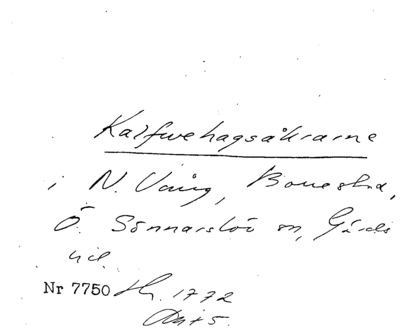 Kalfwehagsåkrarne
i N. Vång, Bonestad,
Ö. Sönnarslöv sn, Gärds
hd.
Nr 7750 Hr. 1772